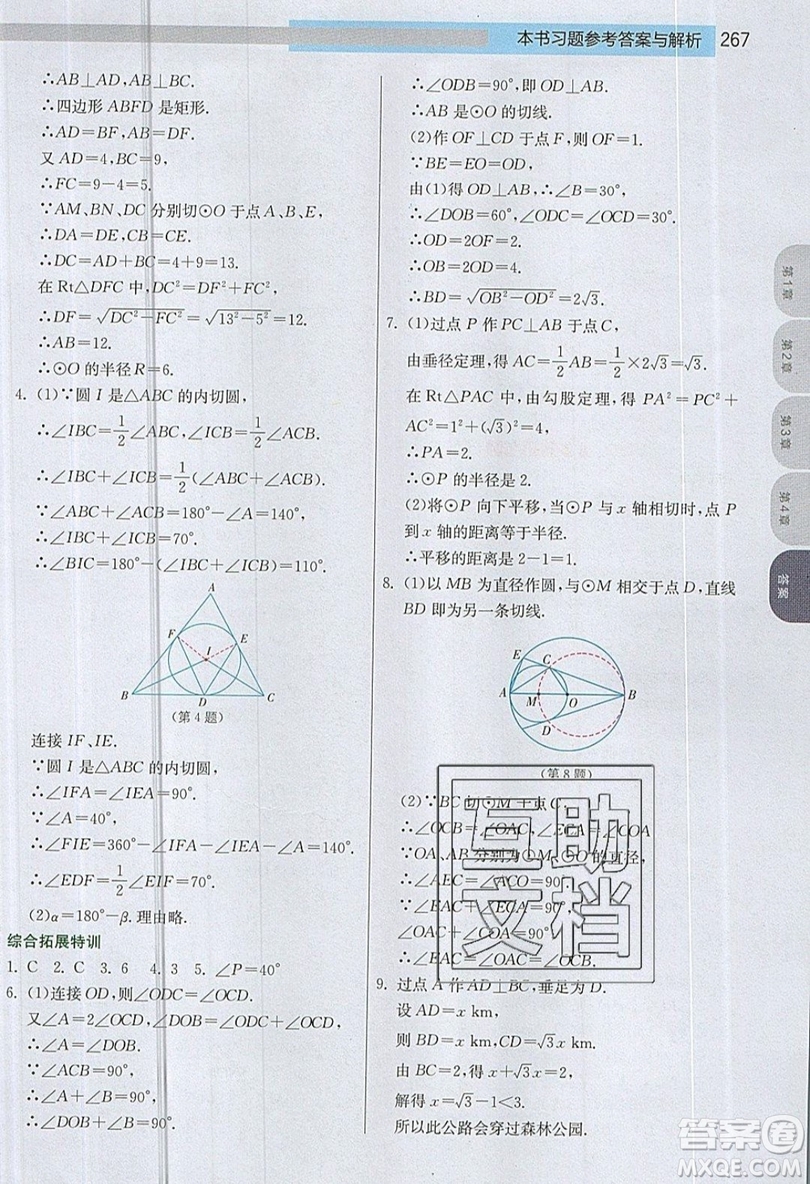 本书习题参考答案与解析 267
∴AB⊥AD,AB⊥BF.
∴四边形 ABFD 是矩形.
∴AD=BF,AB=DF.
又 AD=4,BC=9,
∴FC=9-4=5.
∵AM、BN、DC 分别切⊙O 于点 A、B、E,
∴DA=DE,CB=CE.
∴DC=AD+BC=4+9=13.
在 Rt△DFC 中,DC²=DF²+FC²,
∴DF=√(DC²-FC²)=√(13²-5²)=12.
∴AB=12.
∴⊙O 的半径 R=6.
4. (1)∵圆 I 是△ABC 的内切圆,
∴∠IBC=1/2∠ABC,∠ICB=1/2∠ACB.
∴∠IBC+∠ICB=1/2(∠ABC+∠ACB).
∵∠ABC+∠ACB=180°-∠A=140°,
∴∠IBC+∠ICB=70°.
∴∠BIC=180°-(∠IBC+∠ICB)=110°.
A
F
E
I
B
D
C
(第 4 题)
连接 IF、IE.
∵圆 I 是△ABC 的内切圆,
∴∠IFA=∠IEA=90°.
∵∠A=40°,
∴∠FIE=360°-∠IFA-∠IEA-∠A=140°.
∴∠EDF=1/2∠EIF=70°.
(2)α=180°-β.理由略.
综合拓展特训
1. C 2. C 3. 6 4. 3 5. ∠P=40°
6. (1)连接 OD,则∠ODC=∠OCD.
又∠A=2∠OCD,∠DOB=∠ODC+∠OCD,
∴∠A=∠DOB.
∵∠ACB=90°,
∴∠A+∠B=90°,
∴∠DOB+∠B=90°,
∴∠ODB=90°,即 OD⊥AB.
∴AB 是⊙O 的切线.
(2)作 OF⊥CD 于点 F,则 OF=1.
∵BE=EO=OD,
由(1)得 OD⊥AB,∴∠B=30°.
∴∠DOB=60°,∠ODC=∠OCD=30°.
∴OD=2OF=2.
∴OB=2OD=4.
∴BD=√(OB²-OD²)=2√3.
7. (1)过点 P 作 PC⊥AB 于点 C,
由垂径定理,得 AC=1/2AB=1/2×2√3=√3.
在 Rt△PAC 中,由勾股定理,得 PA²=PC²+
AC²=1²+(√3)²=4.
∴PA=2.
∴⊙P 的半径是 2.
(2)将⊙P 向下平移,当⊙P 与 x 轴相切时,点 P
到 x 轴的距离等于半径.
∴平移的距离是 2-1=1.
8. (1)以 MB 为直径作圆,与⊙M 相交于点 D,直线
BD 即为另一条切线.
E
C
A
M
O
B
D
(第 8 题)
(2)∵BC 切⊙M 于点 C.
∴∠OCB=∠OAC,∠ECA=∠COA.
∵OA、AB 分别为⊙M、⊙O 的直径,
∴∠AEC=∠ACO=90°.
∵∠EAC+∠ECA=90°,
∠OAC+∠COA=90°,
∴∠EAC=∠OAC.
9. 过点 A 作 AD⊥BC,垂足为 D.
设 AD=x km,
则 BD=x km,CD=√3x km.
∵BC=2,得 x+√3x=2,
解得 x=√3-1<3.
所以此公路会穿过森林公园.
第1章
第2章
第3章
第4章
答案
互助
文档
答案圈
MXQE.COM